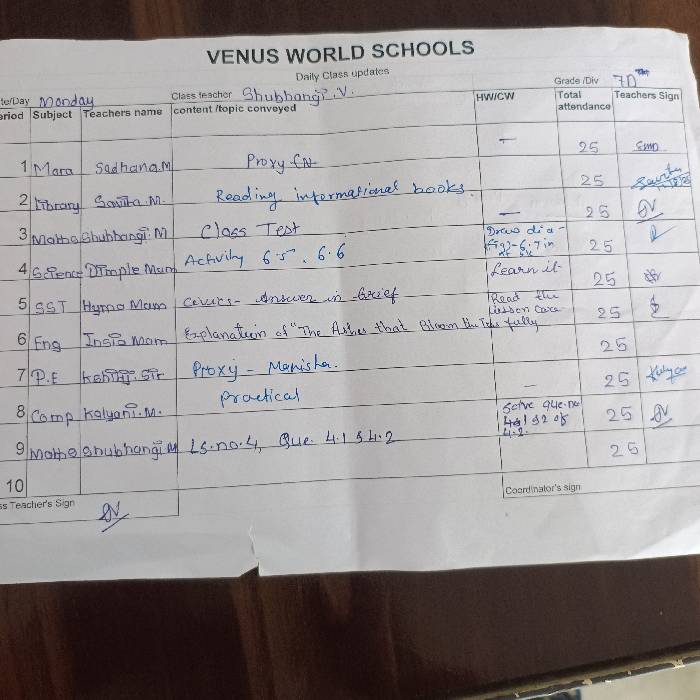 VENUS WORLD SCHOOLS
Daily Class updates
te/Day Monday Class teacher Shubhangi.V. Grade /Div 7D
eriod Subject Teachers name content /topic conveyed HW/CW Total attendance Teachers Sign
1 Mara Sadhana.M Proxy - — 25
2 Library Savita.M. Reading informational books. 25
3 Maths Shubhangi.M Class Test — 25
4 Science Dimple Mam Activity 6.5, 6.6 Draw dia- fig- 6.7 in 25
5 SST Hyma Mam Civics - Answer in brief Learn it 25
6 Eng Insia Mam Explanation of "The Ashes that Bloom the fully Read the Lesson 25
7 P.E Sir Proxy - Manisha. 25
8 Comp Kalyani.M. practical — 25
9 Maths Shubhangi M Ls.no.4, Que. 4.1 & 4.2 Solve que.no 4.2. 25
10 25
ss Teacher's Sign Coordinator's sign